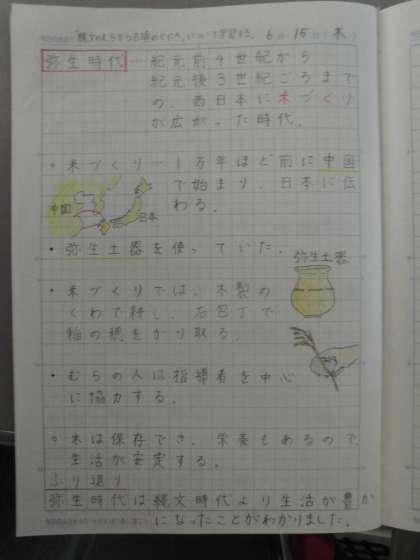 「縄文のむらから古墳のくにへ」について学習する。 6月 15日(木)
弥生時代…紀元前4世紀から
紀元後3世紀ごろまで
の、西日本に米づくり
が広がった時代。
○米づくり…1万年ほど前に中国
で始まり、日本に伝
わる。
中国
日本
・弥生土器を使っていた。
弥生土器
・米づくりでは、木製の
くわで耕し、石包丁で
稲の穂をかり取る。
・むらの人は指導者を中心
に協力する。
○米は保存でき、栄養もあるので
生活が安定する。
ふり返り
弥生時代は縄文時代より生活が豊か
になったことがわかりました。